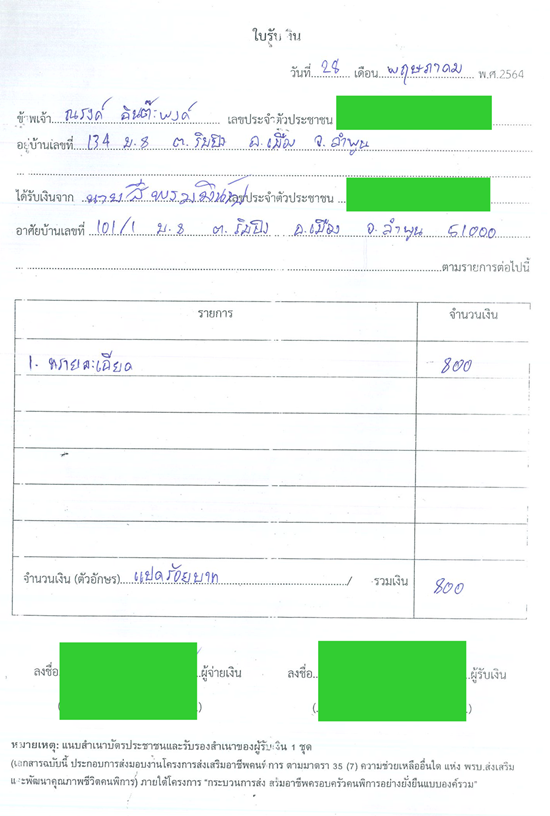 ใบรับเงิน
วันที่ 28 เดือน พฤษภาคม พ.ศ.2564
ข้าพเจ้า ณรงค์ อินต๊ะพงค์ เลขประจำตัวประชาชน
อยู่บ้านเลขที่ 134 ม.8 ต.ริมปิง อ.เมือง จ.ลำพูน
ได้รับเงินจาก นายสี เลขประจำตัวประชาชน
อาศัยบ้านเลขที่ 101/1 ม.8 ต.ริมปิง อ.เมือง จ.ลำพูน 51000
ตามรายการต่อไปนี้
รายการ จำนวนเงิน
1. ทรายละเอียด 800
จำนวนเงิน (ตัวอักษร) แปดร้อยบาท / รวมเงิน 800
ลงชื่อ ผู้จ่ายเงิน ลงชื่อ ผู้รับเงิน
( ) ( )
หมายเหตุ: แนบสำเนาบัตรประชาชนและรับรองสำเนาของผู้รับเงิน 1 ชุด
(เอกสารฉบับนี้ ประกอบการส่งมอบงานโครงการส่งเสริมอาชีพคนพิการ ตามมาตรา 35 (7) ความช่วยเหลืออื่นใด แห่ง พรบ.ส่งเสริม
และพัฒนาคุณภาพชีวิตคนพิการ) ภายใต้โครงการ "กระบวนการส่งเสริมอาชีพครอบครัวคนพิการอย่างยั่งยืนแบบองค์รวม"